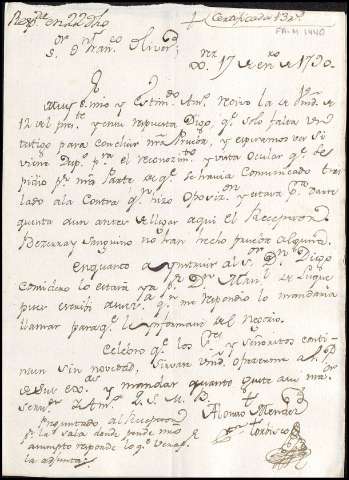 Resp.te en 22 D.ho
Certificada 13 q.s
FA-M 1440
S.or D.n Fran.co Oliver
17 de En.ro de 1790.
Muy S. mio y Estim.do Am.o recivo la de Vmd. de
12 del pres.te y en su repuesta Digo q.e solo falta un
testigo para concluir nra Prueba, y esperamos ver si
viene p.a el reconozim.to y vista Ocular q.e se
pidio p.r nra Parte de q.e se havia Comunicado tras
lado a la Contra q.n hizo y estara p.a darse
quenta aun antes de llegar aqui el Receptor
Bezerra y Sanguino no han hecho prueba alguna.
Enquanto a al S.or D.n Diego
Considero lo estará ya p.r D.n Man.l de Luque
pues escribi me respondio lo mandaria
llamar para q.e le ynformase del Negozio.
Celebro q.e los S.es y Señoritos conti-
nuen sin novedad, sirvase vmd. ofrezerme a
y mandar quanto guste a su ma.or
serv.or y Am.o Q.S.M.B.
Alonso Mendez
Preguntado al Receptor
p.r la sala donde pende mio
asumpto responde lo q.e Vera p.r
la adjunta